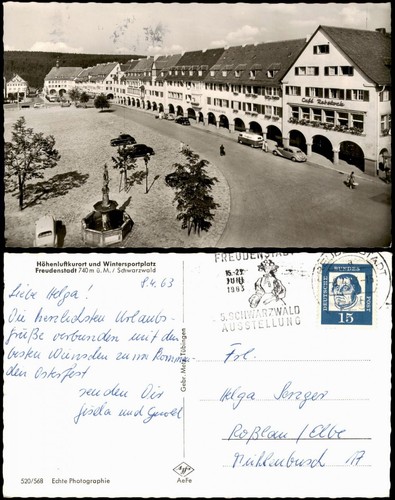 Café Rebstock
Höhenluftkurort und Wintersportplatz
Freudenstadt 740 m ü. M. / Schwarzwald
9.4.63
Liebe Helga!
Die herzlichsten Urlaubs-
grüße verbunden mit den
besten Wünschen zum kommen-
den Osterfest
senden Dir
und
520/568 Echte Photographie
Gebr. Metz, Tübingen
Agfa
AeFe
FREUDENSTADT
15.-23.
JUNI
1963
5. SCHWARZWALD
AUSSTELLUNG
DEUTSCHE BUNDESPOST
15
Frl.
Helga
Roßlau / Elbe